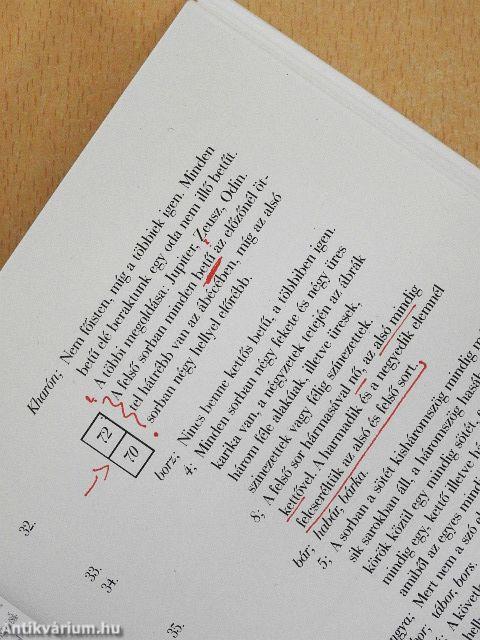 Kharón; Nem főisten, míg a többiek igen. Minden
betű elé beraktunk egy oda nem illő betűt.
A többi megoldása: Jupiter, Zeusz, Odin.
A felső sorban minden betű az előzőnél öt-
tel hátrébb van az ábécében, míg az alsó
sorban négy hellyel előrébb.
72
70
32.
borz; Nincs benne kettős betű, a többitben igen.
33.
4; Minden sorban négy fekete és négy üres
34.
karika van, a négyzetek tetején az ábrák
három féle alakúak, illetve üresek,
színezettek vagy félig színezettek.
8; A felső sor hármasával nő, az alsó mindig
kettővel. A harmadik és a negyedik elemnél
felcseréltük az alsó és felső sort.
35.
bár; habár, bárka.
5; A sorban a sötét kisháromszög mindig m
sik sarokban áll, a háromszög hasáb
körök közül egy mindig sötét, a
mindig egy, kettő illetve há
amiből az egyes mindi
Mert nem a szó el
tábor, bors
A követke
Antikvárium.hu